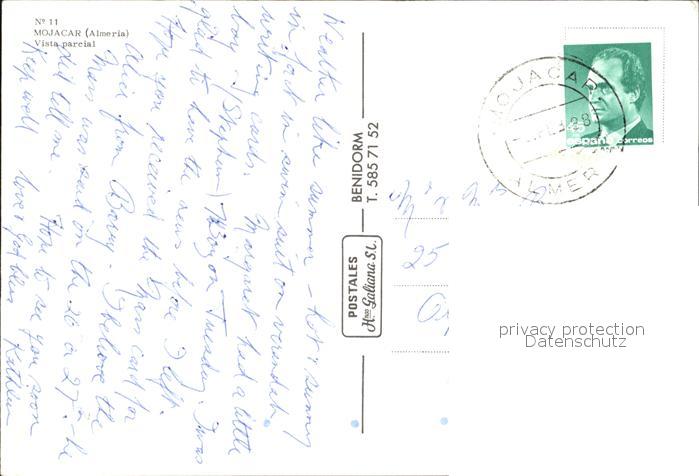 Nº 11
MOJACAR (Almería)
Vista parcial
Weather like summer – hot & sunny
in fact in swim suit on verandah
writing cards. Margaret had a little
boy (Stephen) on Tuesday. I was
glad to have the news before I left.
Hope you received the Mass card for
Alice from Barney. I believe the
Mass was said on the 26 or 27th – he
did tell me. Hope to see you soon
Keep well love & God bless Kathleen
POSTALES
Hnos Galiana S.L.
BENIDORM
T. 585 71 52
25
MOJACAR
ALMER
españa correos
privacy protection
Datenschutz